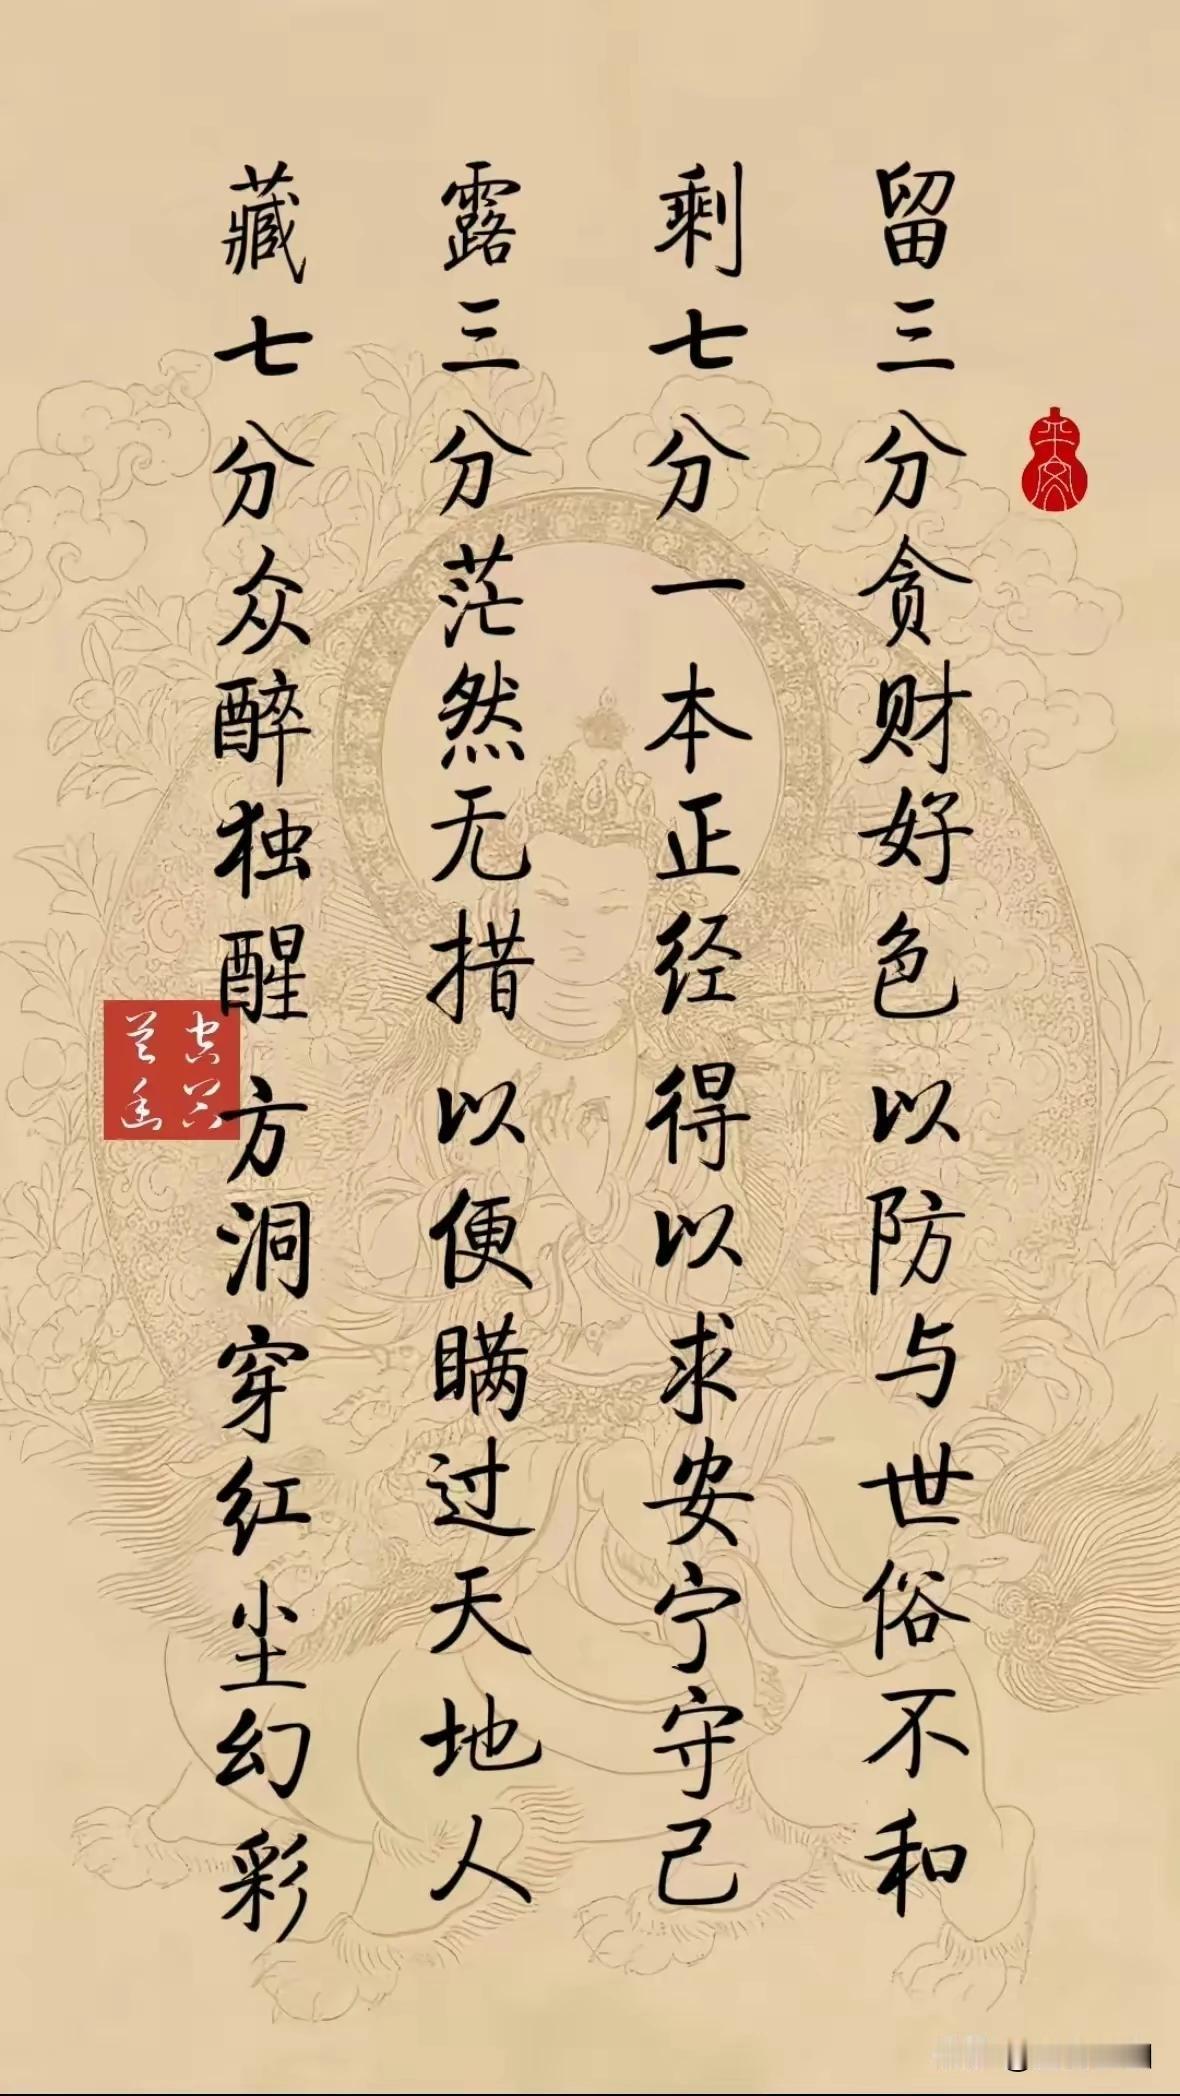 留三分贪财好色以防与世俗不和
剩七分一本正经得以求安宁守己
露三分茫然无措以便瞒过天地人
藏七分众醉独醒方洞穿红尘幻彩
平安